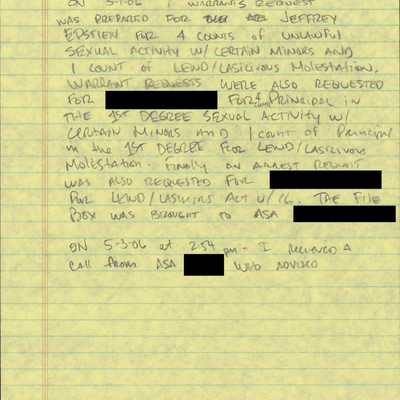 ON 5-1-06 1 WARRANTS REQUEST
WAS PREPARED FOR JEFFREY
EPSTEIN FOR 4 COUNTS of UNLAWFUL
SEXUAL ACTIVITY W/ CERTAIN MINORS AND
1 COUNT OF LEWD/LASICIVOUS MOLESTATION.
WARRANT REQUESTS WERE ALSO REQUESTED
FOR FOR 4 COUNTS PRINCIPAL in
THE 1ST DEGREE SEXUAL ACTIVITY W/
CERTAIN MINORS AND 1 COUNT OF PRINCIPAL
in the 1ST DEGREE FOR LEWD/LASICIVOUS
MOLESTATION. Finally an ARREST REQUEST
WAS ALSO REQUESTED FOR
FOR LEWD/LASICIVIOUS ACT U/16. THE FILE
BOX WAS BROUGHT to ASA
ON 5-3-06 at 2:54 pm - I RECIEVED A
CALL FROM ASA WHO ADVISED